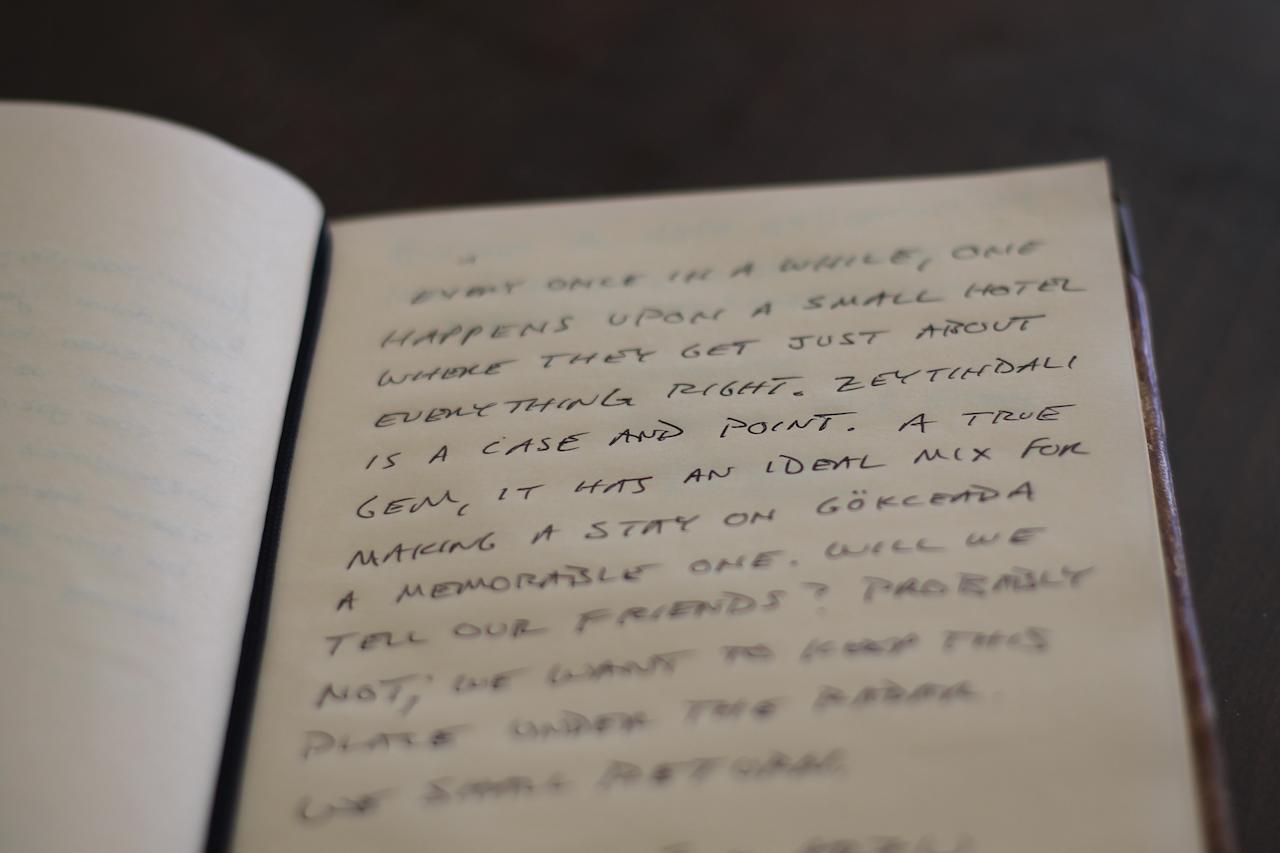 EVERY ONCE IN A WHILE, ONE
HAPPENS UPON A SMALL HOTEL
WHERE THEY GET JUST ABOUT
EVERYTHING RIGHT. ZEYTINDALI
IS A CASE AND POINT. A TRUE
GEM, IT HAS AN IDEAL MIX FOR
MAKING A STAY ON GÖKCEADA
A MEMORABLE ONE. WILL WE
TELL OUR FRIENDS? PROBABLY
NOT, WE WANT TO KEEP THIS
PLACE UNDER THE RADAR.
WE SHALL RETURN.